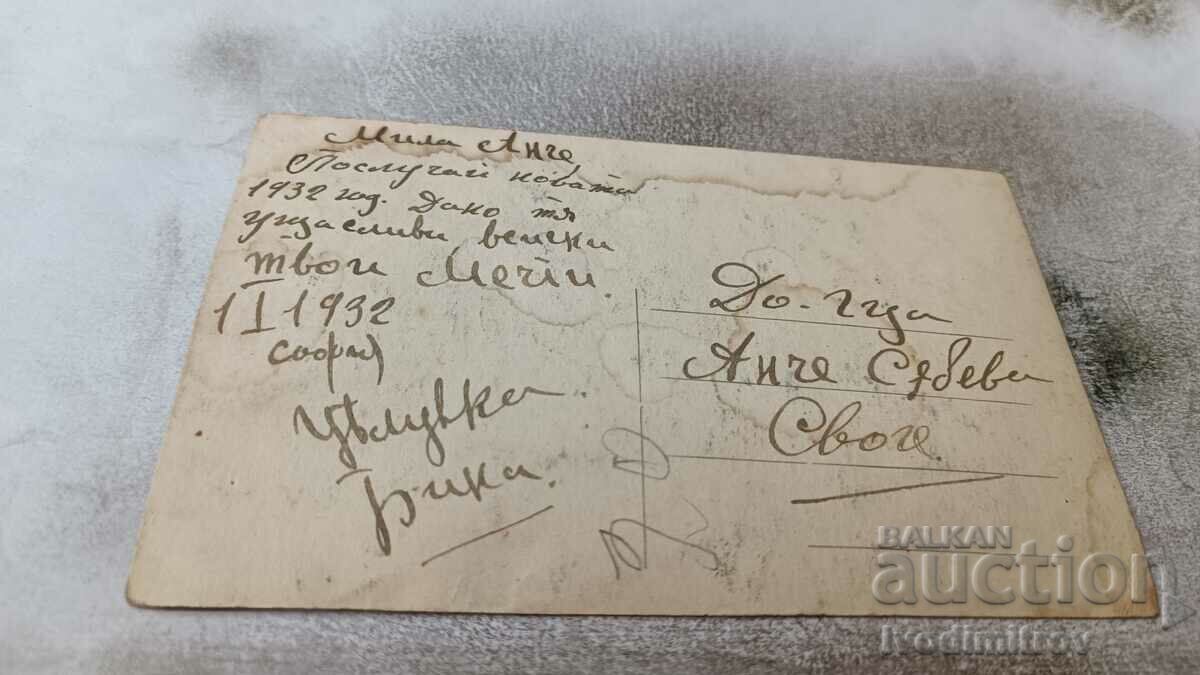 Мила Анче,
Послучай новата
1932 год. Дано тя
ущасливи всички
твои мечти.
1 I 1932
София
Цѣлувка
Бика.
До. Г-ца
Анче
Своге.
BALKAN
auction
Ivodimitrov